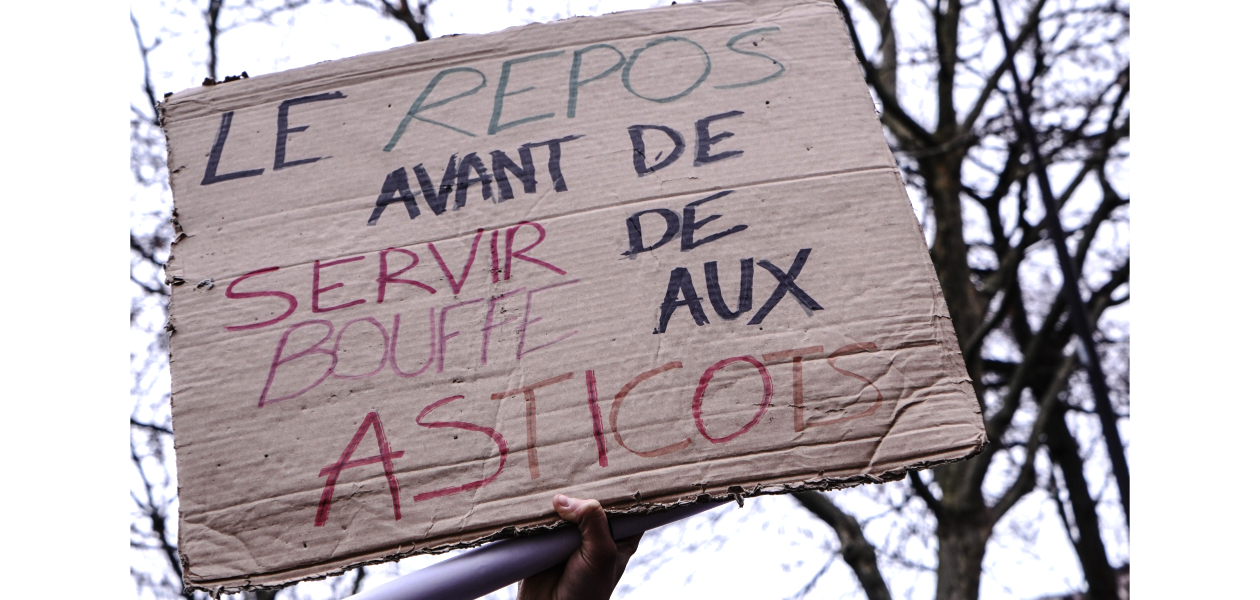 LE REPOS
AVANT DE
SERVIR DE
BOUFFE AUX
ASTICOTS